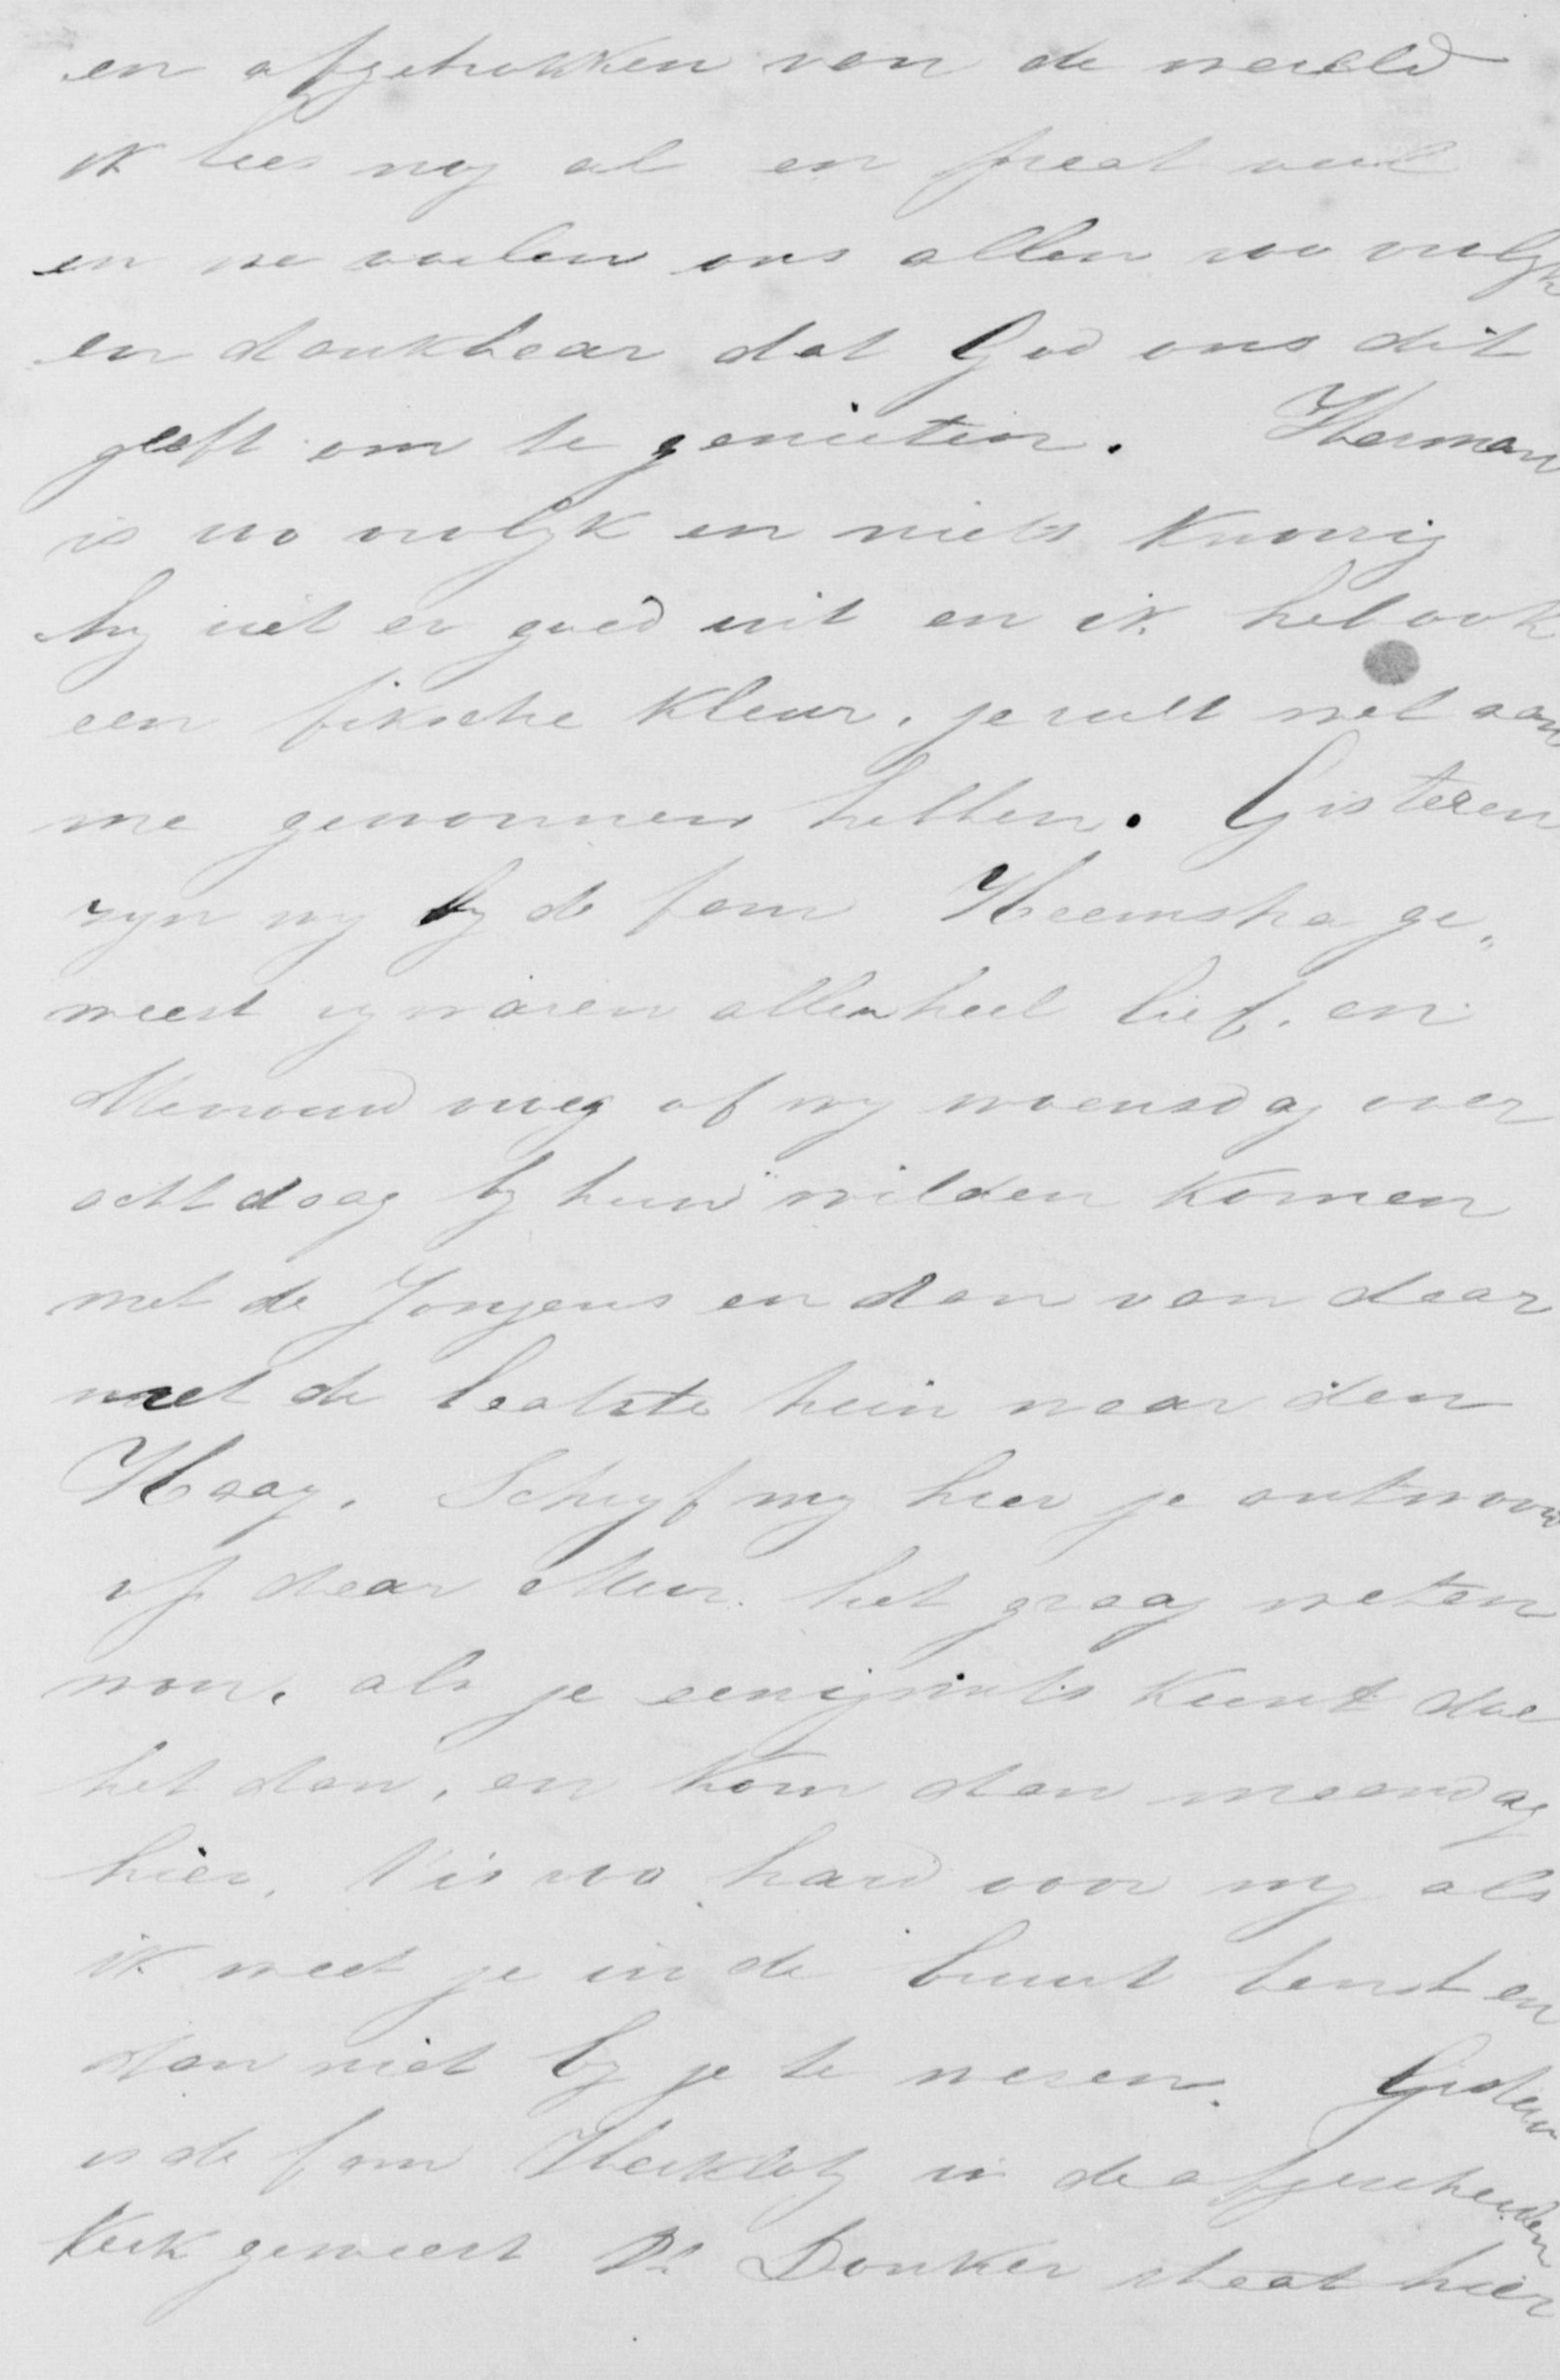 en afgetrokken van de wereld
ik lees nog al en praat veel
en we voelen ons allen zoo vrolyk
en dankbaar dat God ons dit
geeft om te genieten. Herman
is zoo vrolyk en niets knorrig
hy ziet er goed uit en ik heb ook
een fiksche kleur, je zult wel aan
me gewonnen hebben. Gisteren
zyn wy by de fam Heemstra ge„
weest zy waren allen heel lief. en
Mevrouw vroeg of wy woensdag over
acht daag by hun wilden komen
met de Jongens en dan van daar
met de laatste trein naar den
Haag. Schryf my hier je antwoord
op daar Mevr. het graag weten
wou. als je eenigzints kunt doe
het dan, en kom dan maandag
hier, 't is zoo hard voor my als
ik weet je in de buurt benst en
dan niet by je te wezen. Gisteren
is de fam Herklots in de afgescheiden
kerk geweest Ds Donker staat hier